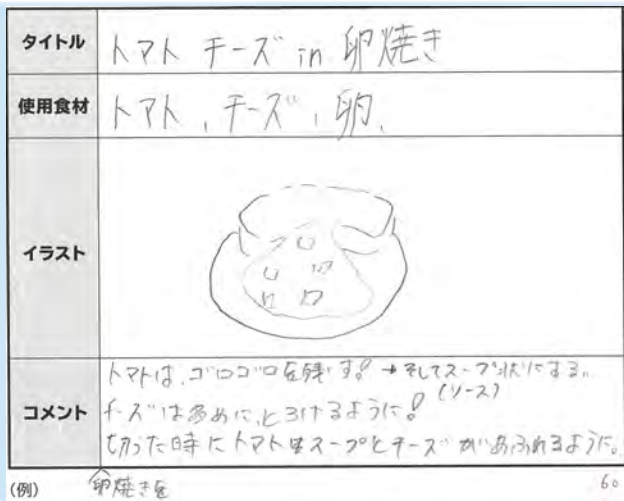 タイトル トマト チーズ in 卵焼き
使用食材 トマト、チーズ、卵、
イラスト
コメント
トマトは、ゴロゴロを残す! → そしてスープ状にする。
(ソース)
チーズは多めに、とろけるように!
切った時にトマトスープとチーズがあふれるように。
(例) 卵焼きを
60